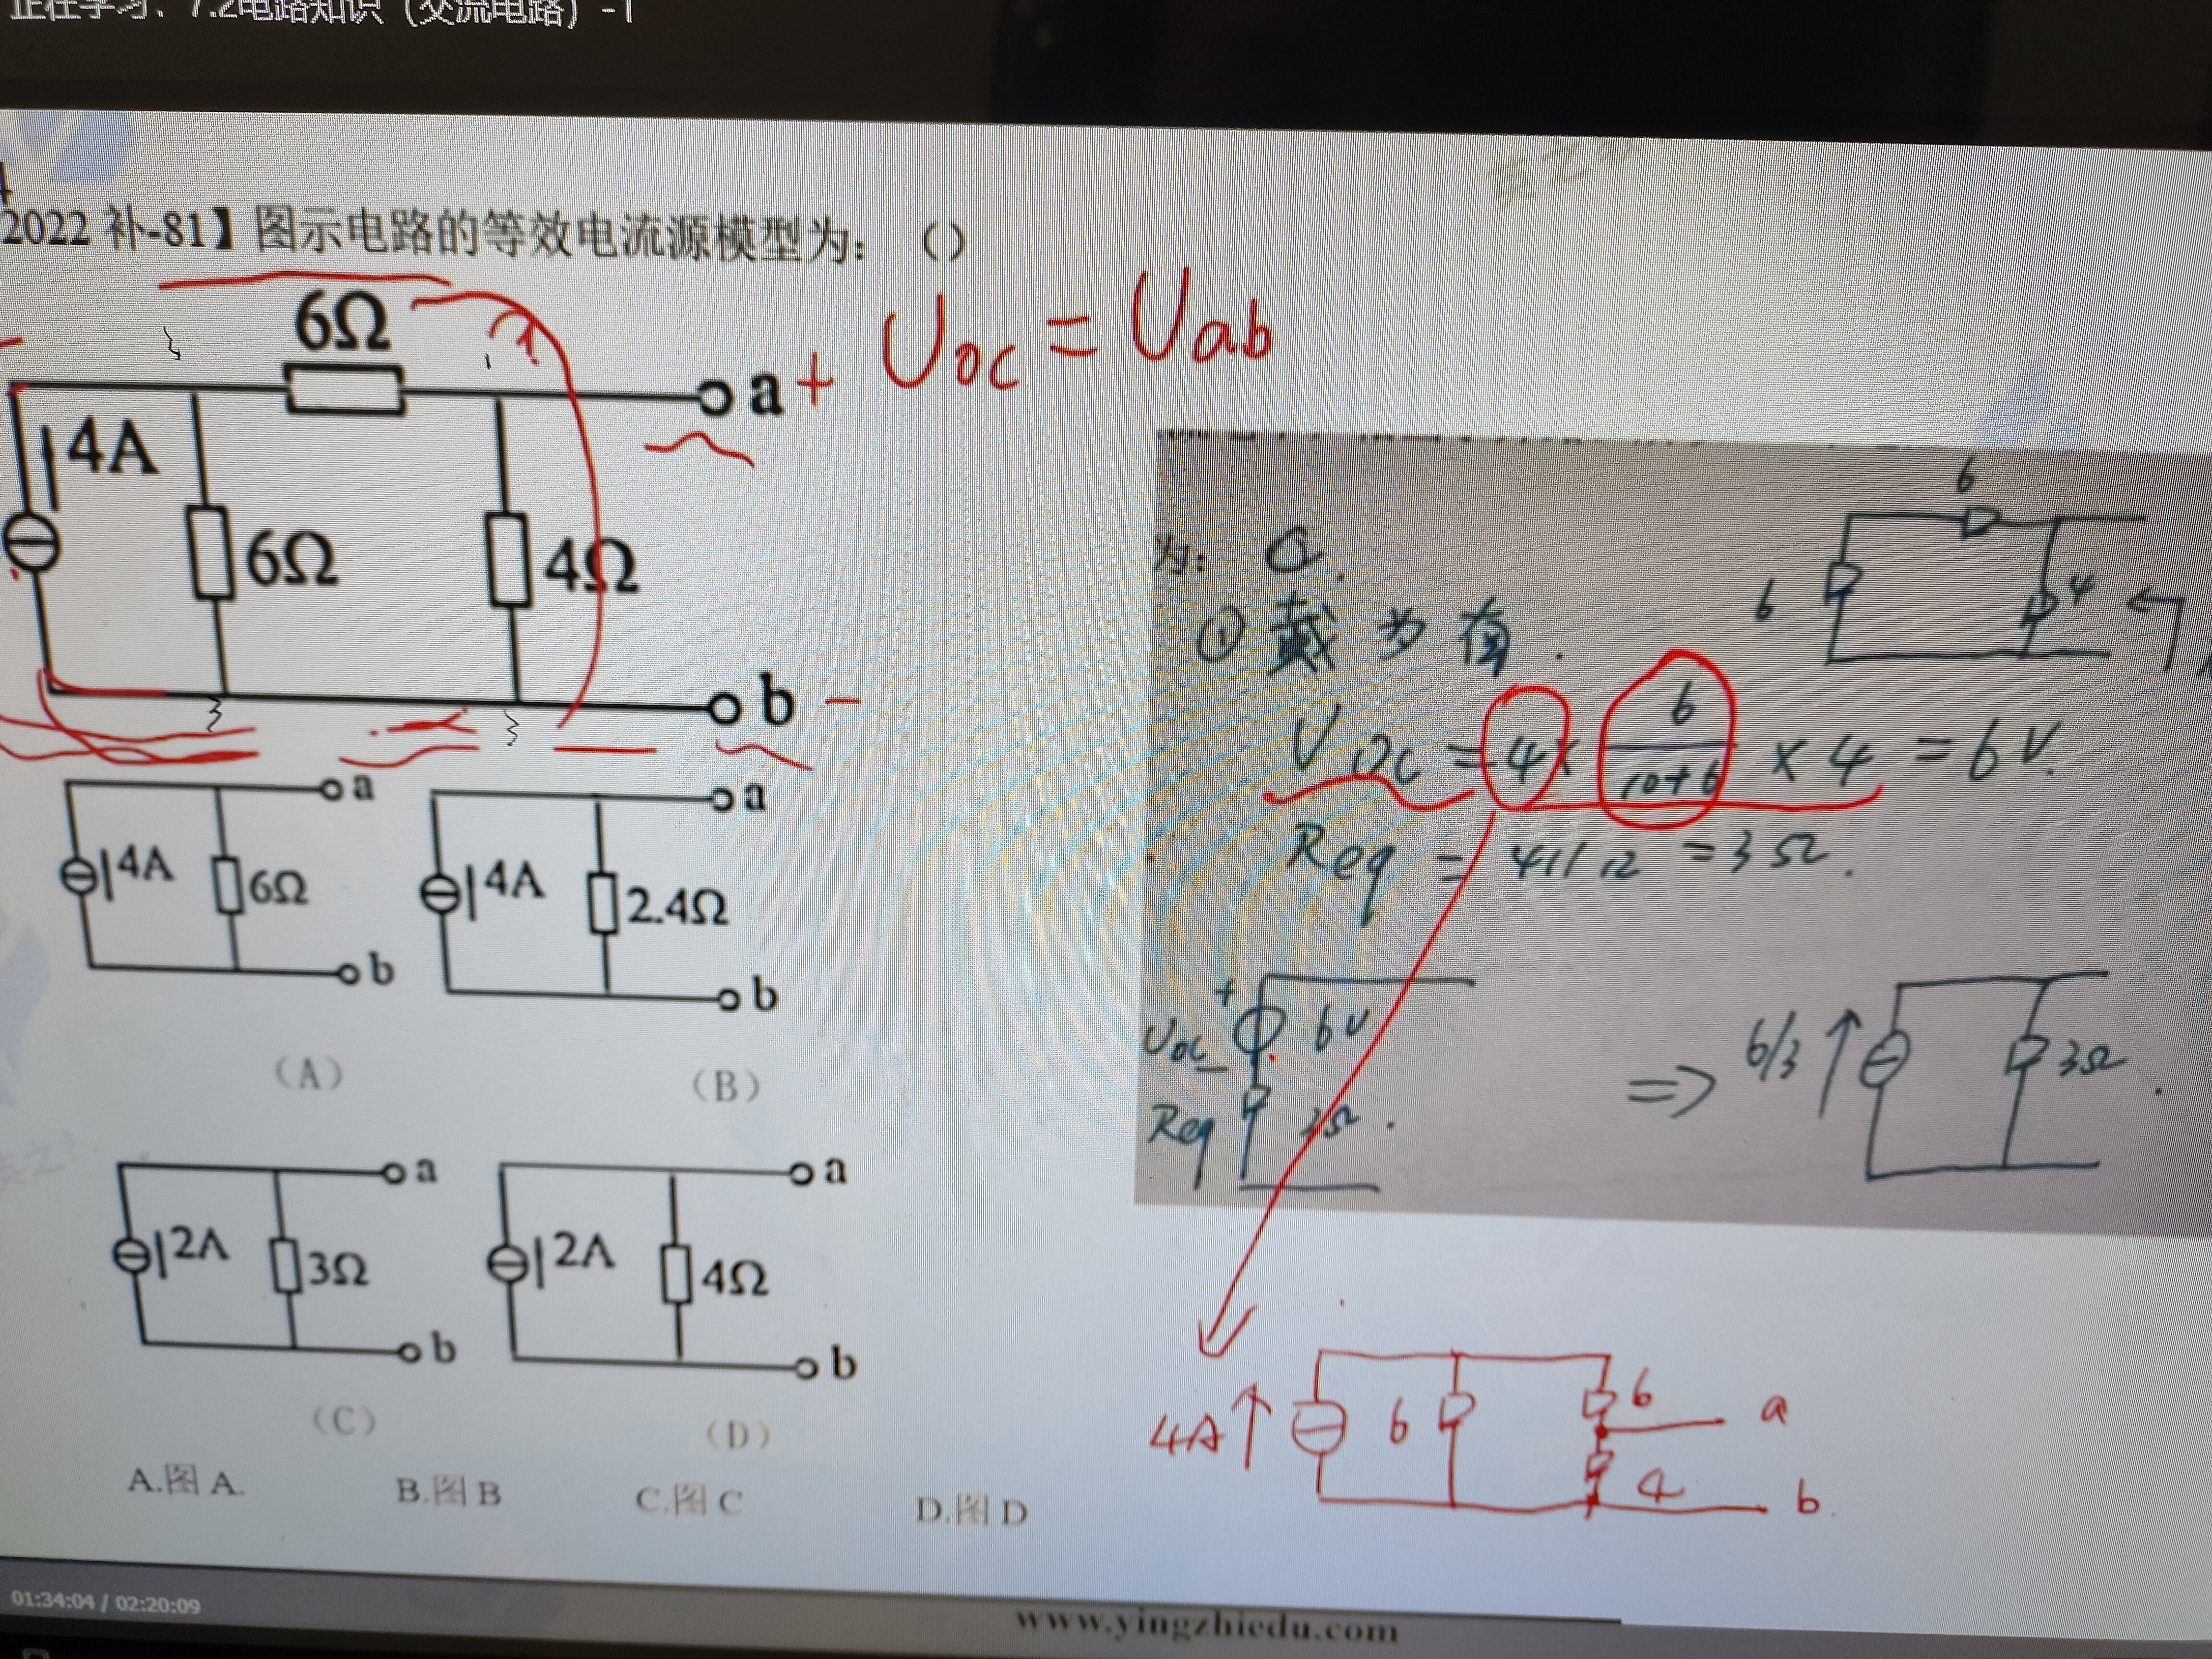 正在学习、7.2电路知识（交流电路）-1
2022 补-81】图示电路的等效电流源模型为：（）
6Ω
a + Uoc = Uab
4A
6Ω
4Ω
b -
为： C.
① 戴为南.
Voc = 4 × 6/(10+6) × 4 = 6V.
Req = 4//12 = 3Ω.
6
6
4
Uoc + - 6V
Req 3Ω.
=> 6/3 ↑ 3Ω.
a
4A
6Ω
b
(A)
a
4A
2.4Ω
b
(B)
a
2A
3Ω
b
(C)
a
2A
4Ω
b
(D)
4A↑ 6 6 a
4 b
A.图 A.
B.图 B
C.图 C
D.图 D
01:34:04 / 02:20:09
www.yingzhiedu.com